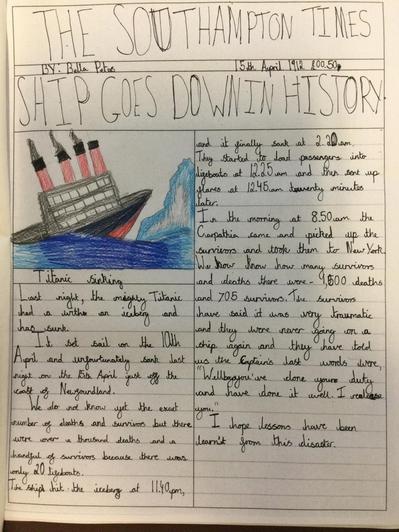 THE SOUTHAMPTON TIMES
BY: Bella Potas
15th April 1912 £00.50p
SHIP GOES DOWN IN HISTORY
Titanic sinking
Last night, the mighty Titanic
had a with an iceberg and
has sunk.
It set sail on the 10th
April and unfortunately sank last
night on the 15th April just off the
coast of Newfoundland.
We do not know yet the exact
number of deaths and survivors but there
were over a thousand deaths and a
handful of survivors because there was
only 20 lifeboats.
The ship hit the iceberg at 11.40pm,
and it finally sank at 2.20am.
They started to load passengers into
lifeboats at 12.25am and then sent up
flares at 12.45am twenty minutes
later.
In the morning at 8.50am the
Carpathia came and picked up the
survivors and took them to New York.
We know how many survivors
and deaths there were - 1,500 deaths
and 705 survivors. The survivors
have said it was very traumatic
and they were never going on a
ship again and they have told
us the Captain's last words were,
"Well boys you've done your duty
and have done it well. I release
you."
I hope lessons have been
learn't from this disaster.